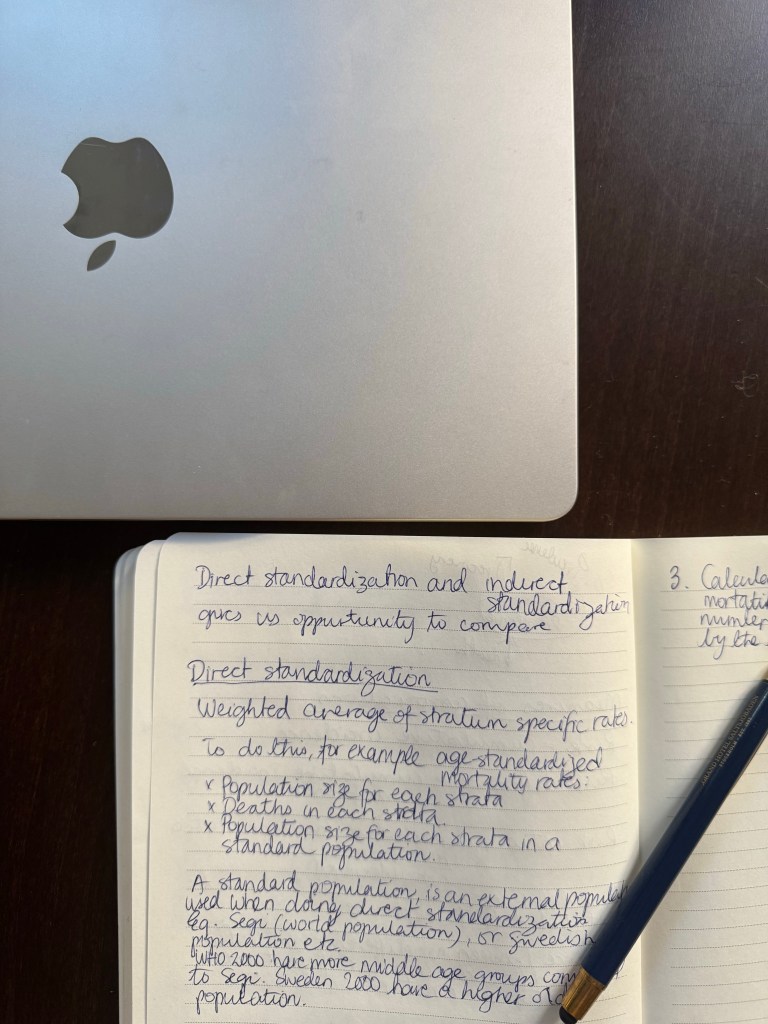 Direct standardization and indirect
standardization
gives us oppurtunity to compare
Direct standardization
Weighted average of stratum specific rates.
To do this, for example age standardized
mortality rates:
x Population size for each strata
x Deaths in each strata
x Population size for each strata in a
standard population.
A standard population, is an external
used when doing direct standardization
Eg. Segi (world population), or Swedish
population etc.
WHO 2000 have more middle age groups
to Segi. Sweden 2000 have a higher old
population.
3.
by the